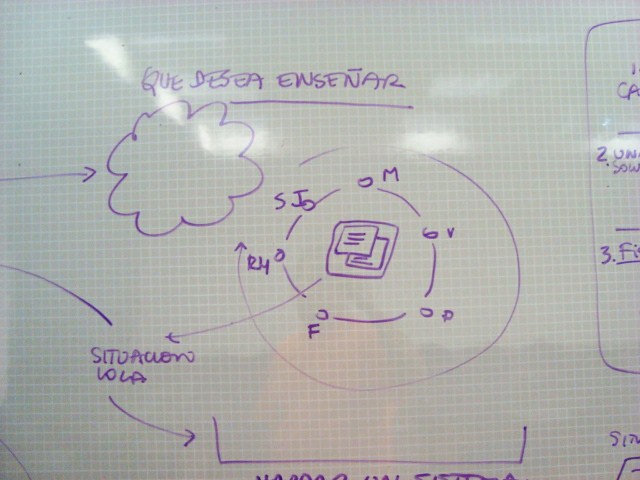 QUE DESEA ENSEÑAR
M
SI
V
RH
F
P
SITUACION
LOCA
CA
2. UNA
3. Fi
SITU